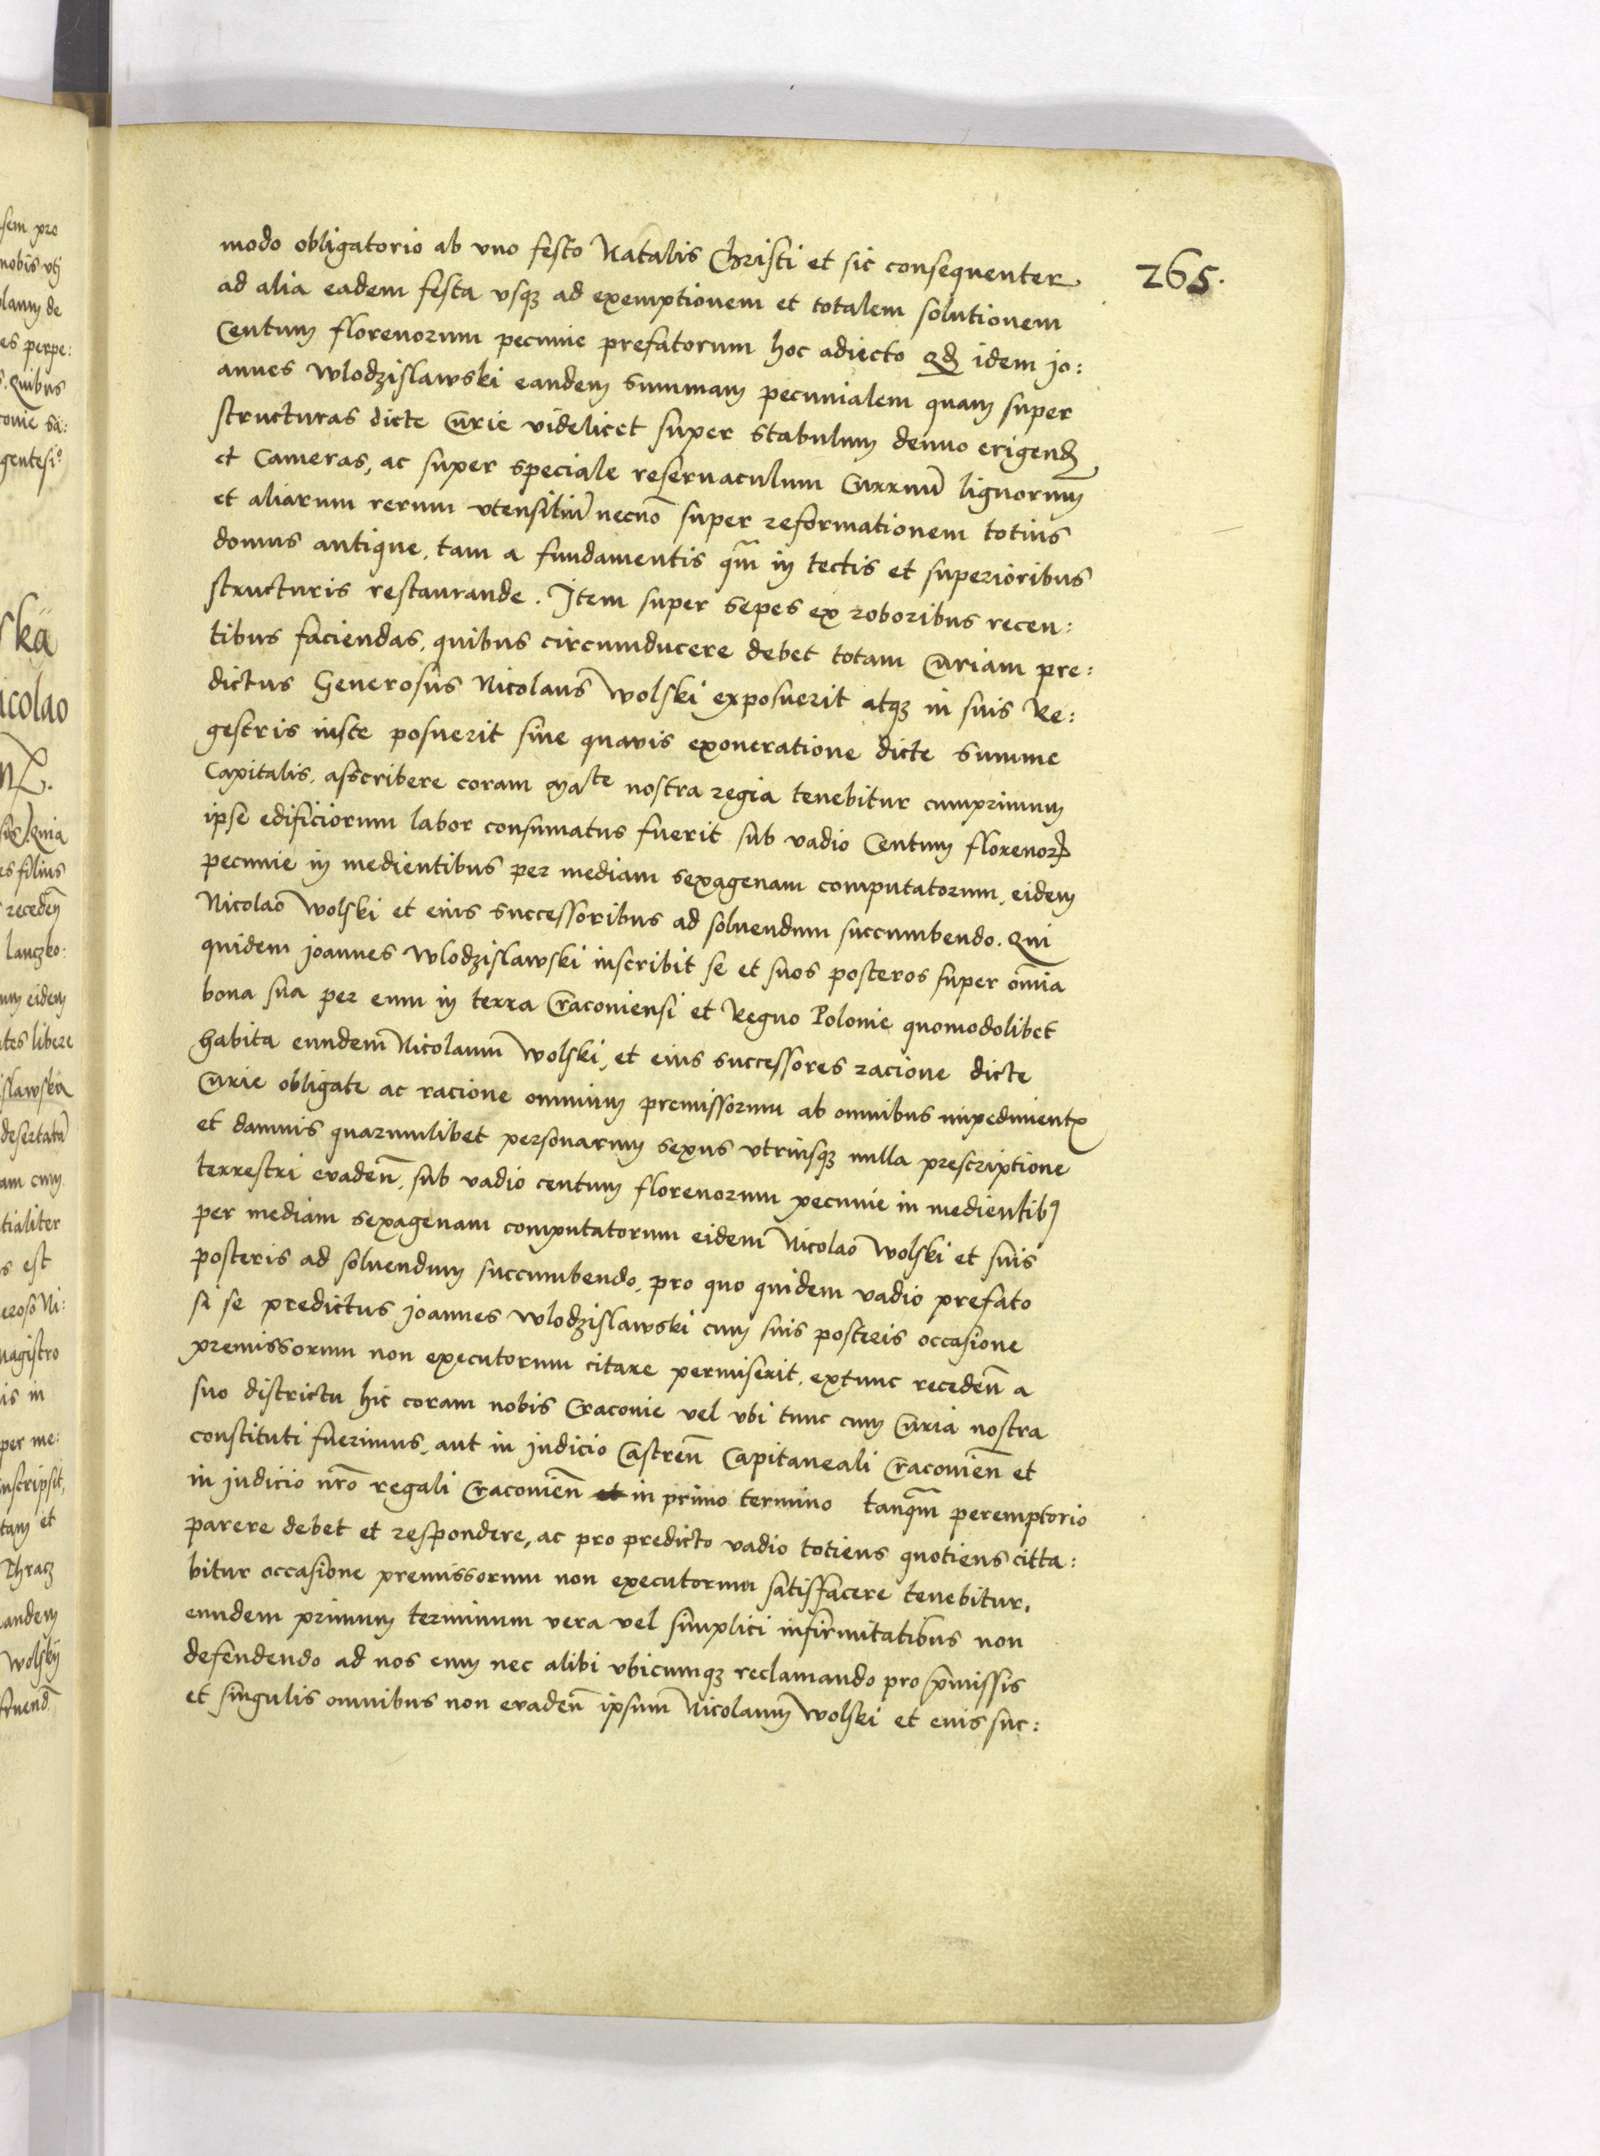 265.
modo obligatorio ab vno festo Natalis Christi et sic consequenter
ad alia eadem festa vsqꝫ ad exemptionem et totalem solutionem
Centum florenorum pecunie prefatorum hoc adiecto qd idem Jo:
annes Wlodzislawski eandem summam pecunialem quam super
structuras dicte Curie videlicet super stabulum denuo erigend
et Cameras, ac super speciale reseruaculum Curruũ lignorum
et aliarum rerum vtensiliũ necnõ super reformationem totius
domus antique, tam a fundamentis qm̃ in tectis et superioribus
structuris restaurande. Item super sepes ex roboribus recen:
tibus faciendas, quibus circumducere debet totam Curiam pre:
dictus Generosus Nicolaus Wolski exposuerit atqꝫ in suis Re:
gestris iuste posuerit sine quavis exoneratione dicte summe
Capitalis, asscribere coram Mate nostra regia tenebitur cumprimum
ipse edificiorum labor consumatus fuerit sub vadio Centum florenoꝝ
pecunie in medientibus per mediam sexagenam computatorum, eidem
Nicolao Wolski et eius successoribus ad soluendum succumbendo. Qui
quidem Joannes Wlodzislawski inscribit se et suos posteros super om̃ia
bona sua per eum in terra Cracoviensi et Regno Polonie quomodolibet
habita eundem Nicolaum Wolski, et eius successores racione dicte
Curie obligate ac racione omnium premissorum ab omnibus impedimentꝭ
et damnis quarumlibet personarum sexus vtriusqꝫ nulla prescriptione
terrestri evadeñ, sub vadio centum florenorum pecunie in medientibꝫ
per mediam sexagenam computatorum eidem Nicolao Wolski et suis
posteris ad soluendum succumbendo, pro quo quidem vadio prefato
si se predictus Joannes Wlodzislawski cum suis posteris occasione
premissorum non executorum citare permiserit, extunc recedeñ a
suo districtu hic coram nobis Cracovie vel vbi tunc cum Curia nostra
constituti fuerimus, aut in judicio Castreñ Capitaneali Cracovieñ et
in judicio nr̃o regali Cracovieñ et in primo termino tanqm̃ peremptorio
parere debet et respondere, ac pro predicto vadio totiens quotiens citta:
bitur occasione premissorum non executorum satisfacere tenebitur,
eundem primum terminum vera vel simplici infirmitatibus non
defendendo ad nos eum nec alibi vbicumqꝫ reclamando pro p̃missis
et singulis omnibus non evadeñ ipsum Nicolaum Wolski et eius suc: